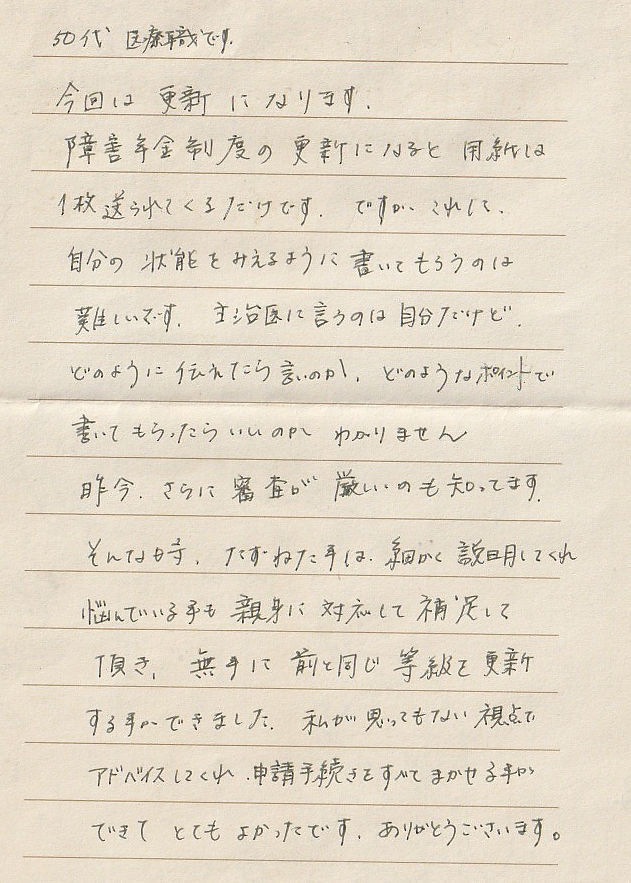 50代 医療職です。
今回は 更新 になります.
障害年金制度の 更新になると 用紙は
1枚送られてくるだけです. ですが、これに、
自分の 状能をみえるように 書いてもらうのは
難しいです. 主治医に言うのは自分だけど.
どのように伝えたら言いのか、どのようなポイントで
書いてもらったらいいのか わかりません
昨今、さらに審査が 厳しいのも知ってます.
そんな時、たずねた事は、細かく説明してくれ
悩んでいる事も 親身に対応して補足して
頂き、無事に 前と同じ 等級を更新
する事ができました. 私が思ってもない視点で
アドバイスしてくれ、申請手続きをすべてまかせる事が
できて とてもよかったです. ありがとうございます。